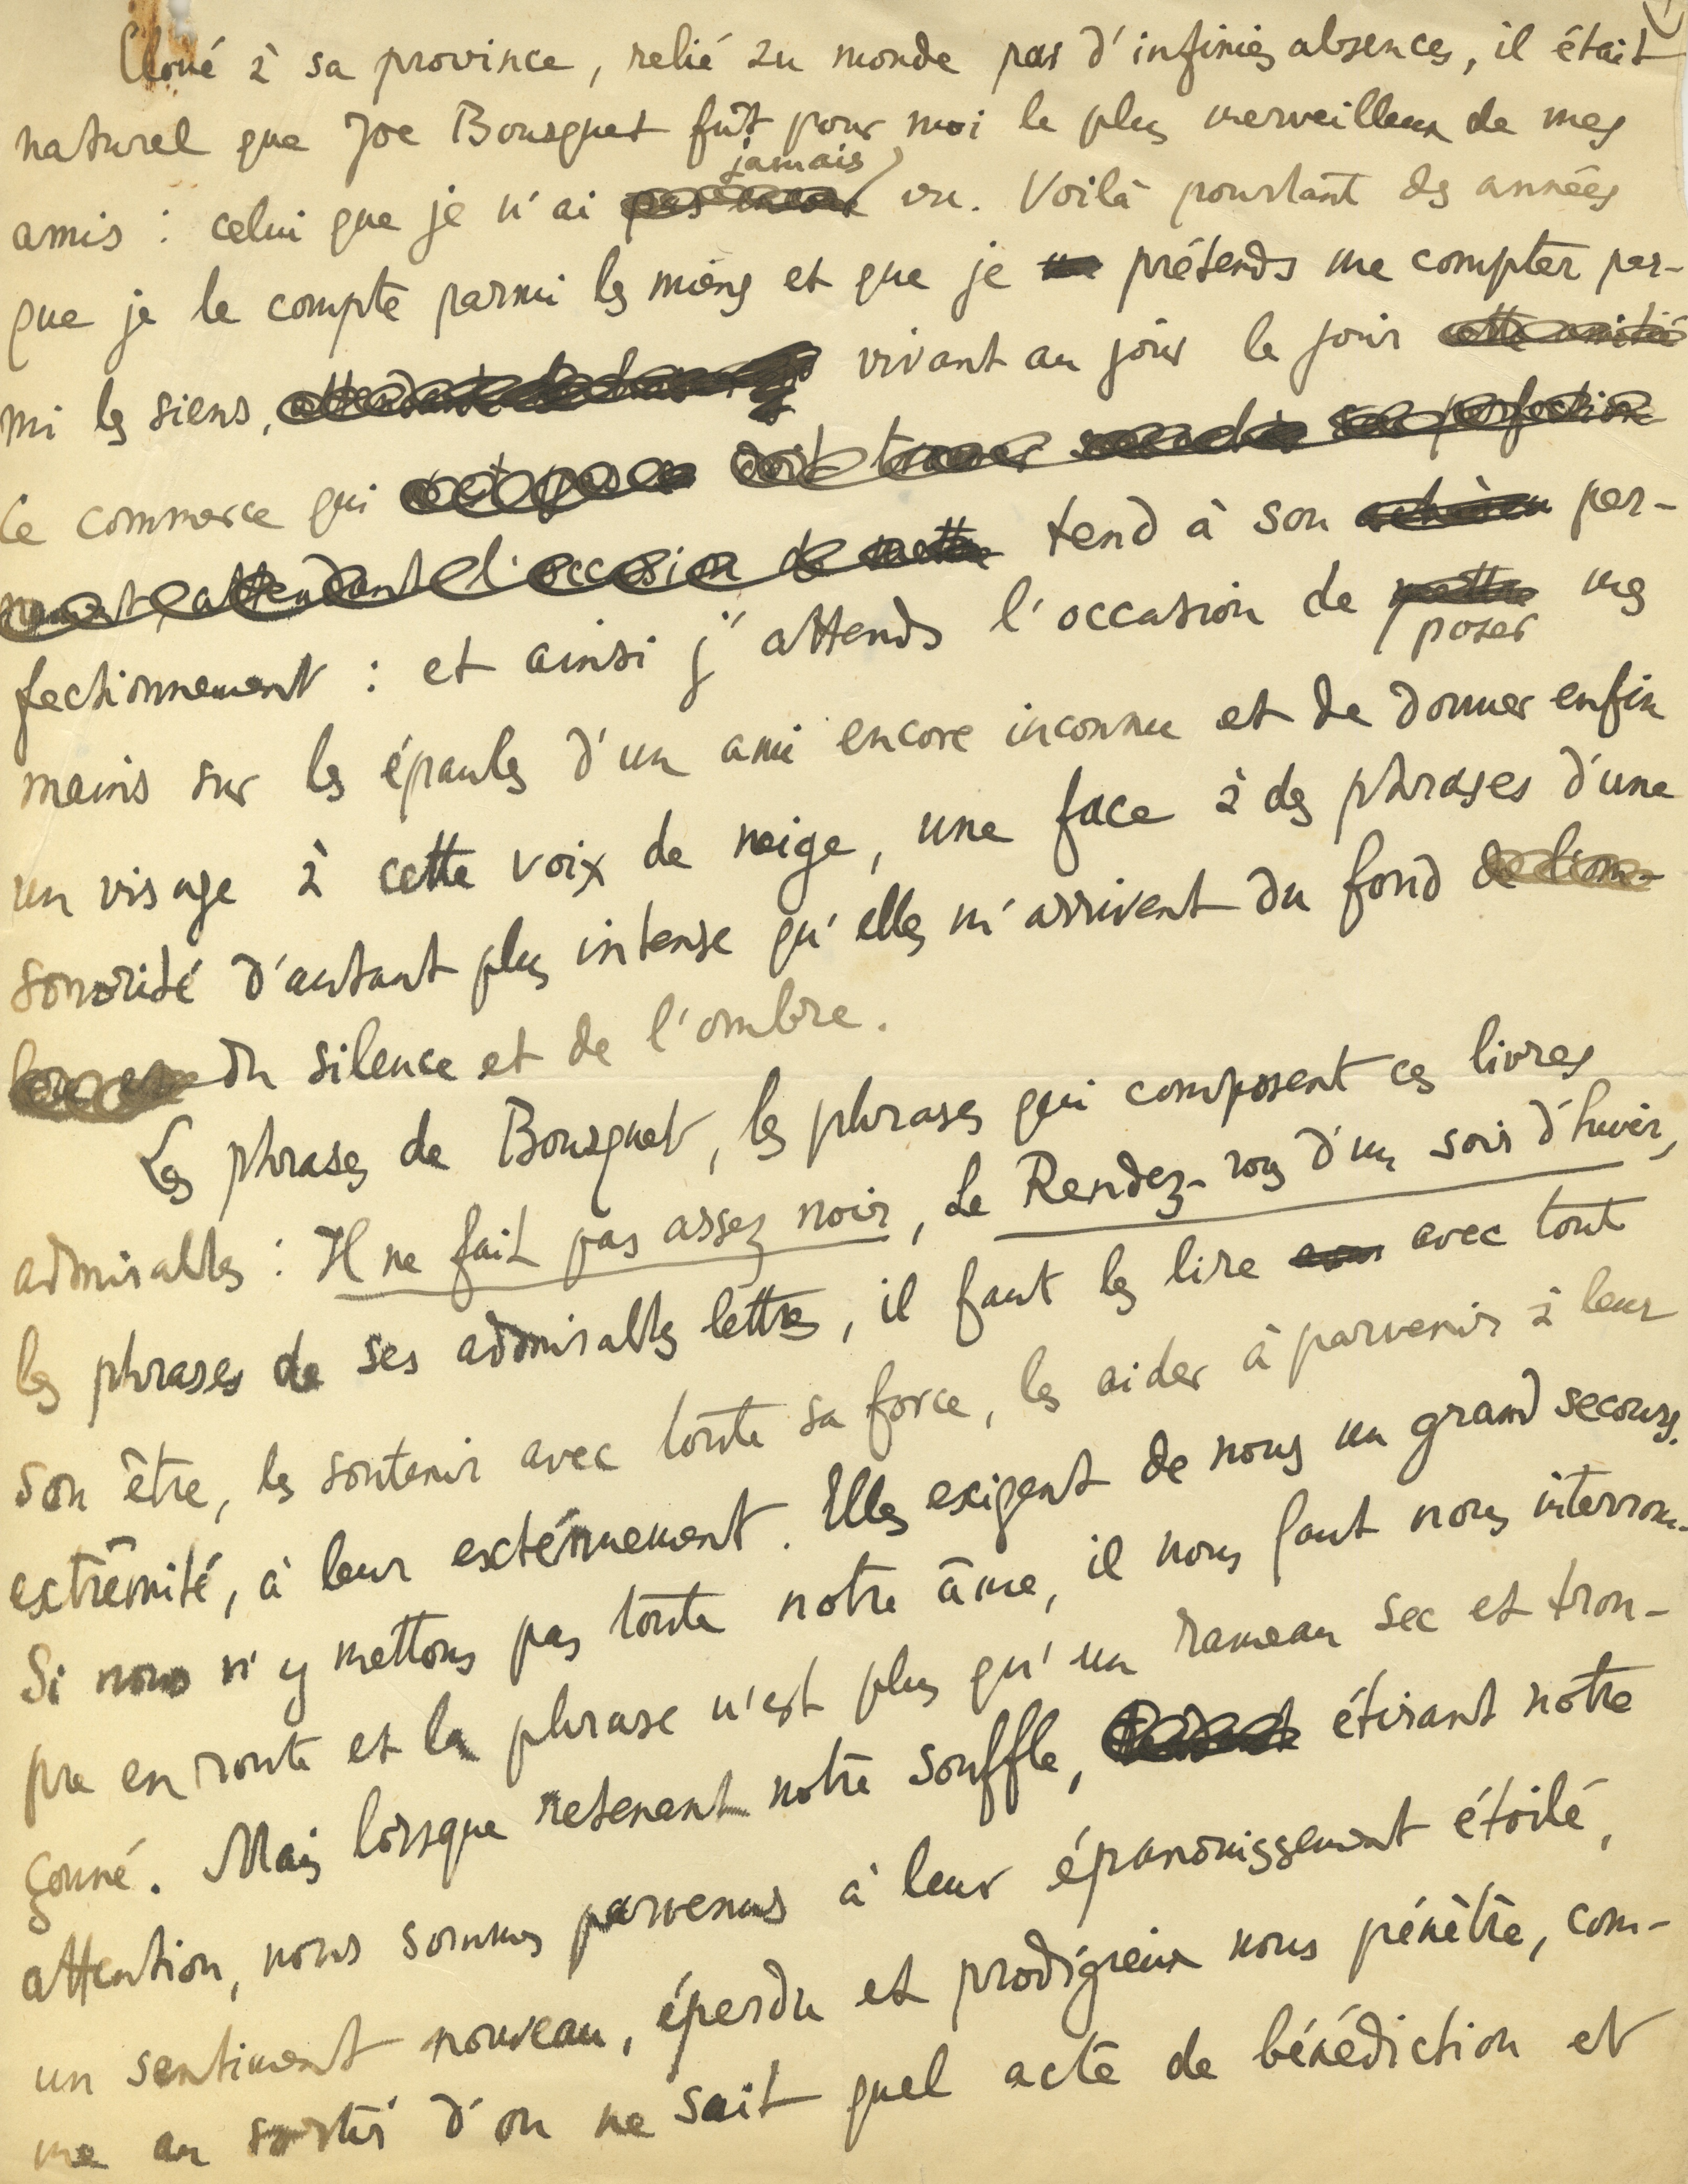 Cloué à sa province, relié au monde par d'infinies absences, il était
naturel que Joe Bousquet fût pour moi le plus merveilleux de mes
jamais
amis : celui que je n'ai pas encore vu. Voilà pourtant des années
que je le compte parmi les miens et que je prétends me compter par-
mi les siens, vivant au jour le jour cette amitié
Ce commerce qui doit trouver sa perfection
attendant l'occasion de mettre tend à son per-
fectionnement : et ainsi j'attends l'occasion de mettre mes
poser
mains sur les épaules d'un ami encore inconnu et de donner enfin
un visage à cette voix de neige, une face à des phrases d'une
sonorité d'autant plus intense qu'elles m'arrivent du fond
du silence et de l'ombre.
Les phrases de Bousquet, les phrases qui composent ces livres
admirables : Il ne fait pas assez noir, Le Rendez-vous d'un soir d'hiver,
les phrases de ses admirables lettres, il faut les lire avec tout
son être, les soutenir avec toute sa force, les aider à parvenir à leur
extrêmité, à leur exténuement. Elles exigent de nous un grand secours.
Si nous n'y mettons pas toute notre âme, il nous faut nous interrom-
pre en route et la phrase n'est plus qu'un rameau sec et tron-
çonné. Mais lorsque retenant notre souffle, étirant notre
attention, nous sommes parvenus à leur épanouissement étoilé,
un sentiment nouveau, éperdu et prodigieux nous pénètre, com-
me au sortir d'on ne sait quel acte de bénédiction et